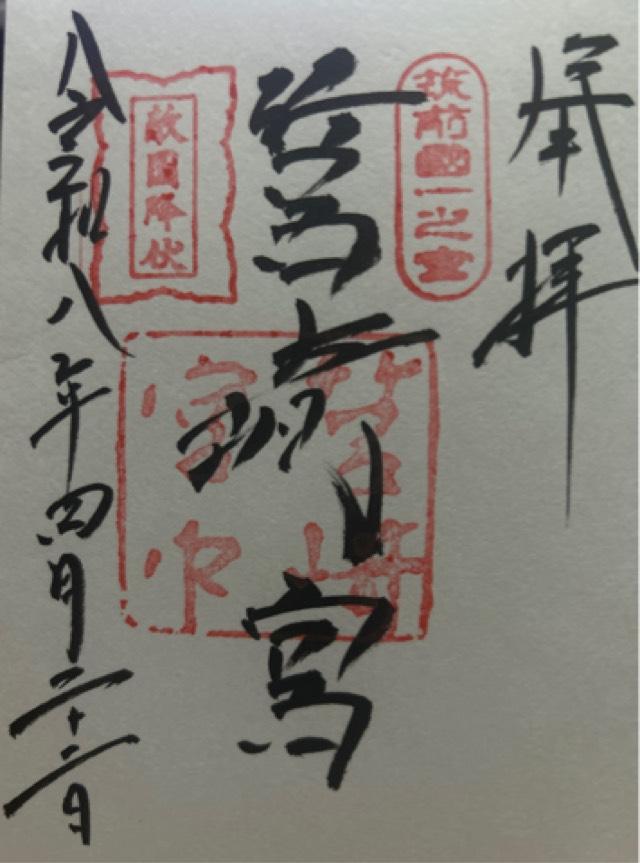 奉拝
筑前國一之宮
筥崎宮
筥崎
宮印
敵國降伏
令和八年四月二十二日